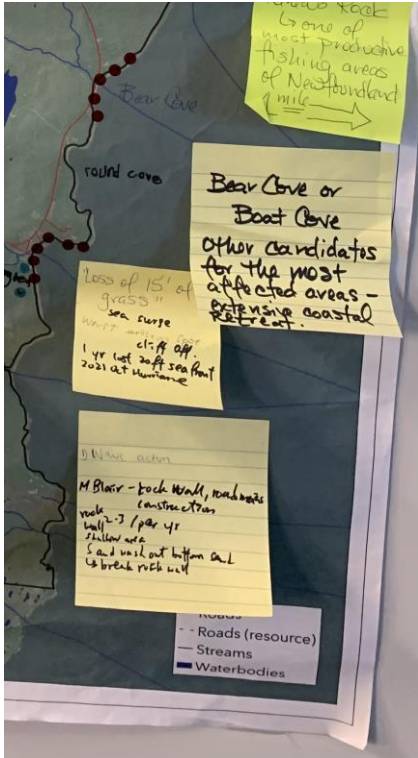 Rock
↳ one of
most productive
fishing areas
of Newfoundland
1 mile
Bear Cove
round cove
Bear Cove or
Boat Cove
Other candidates
for the most
affected areas –
extensive coastal
retreat.
"Loss of 15' of
grass"
sea surge
cliff off.
1 yr lost 20ft sea front
2021 Oct Hurricane
1) Wave action
M Blair – rock wall, roadworks
construction
rock
wall 2-3 / per yr
shallow area
Sand wash out bottom sand
↳ break rock wall
Roads
-- Roads (resource)
— Streams
Waterbodies